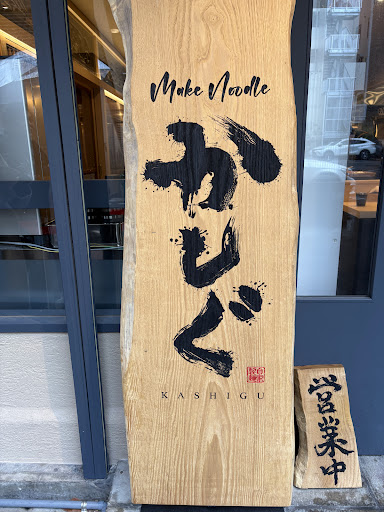 Make Noodle
かしぐ
KASHIGU
営業中